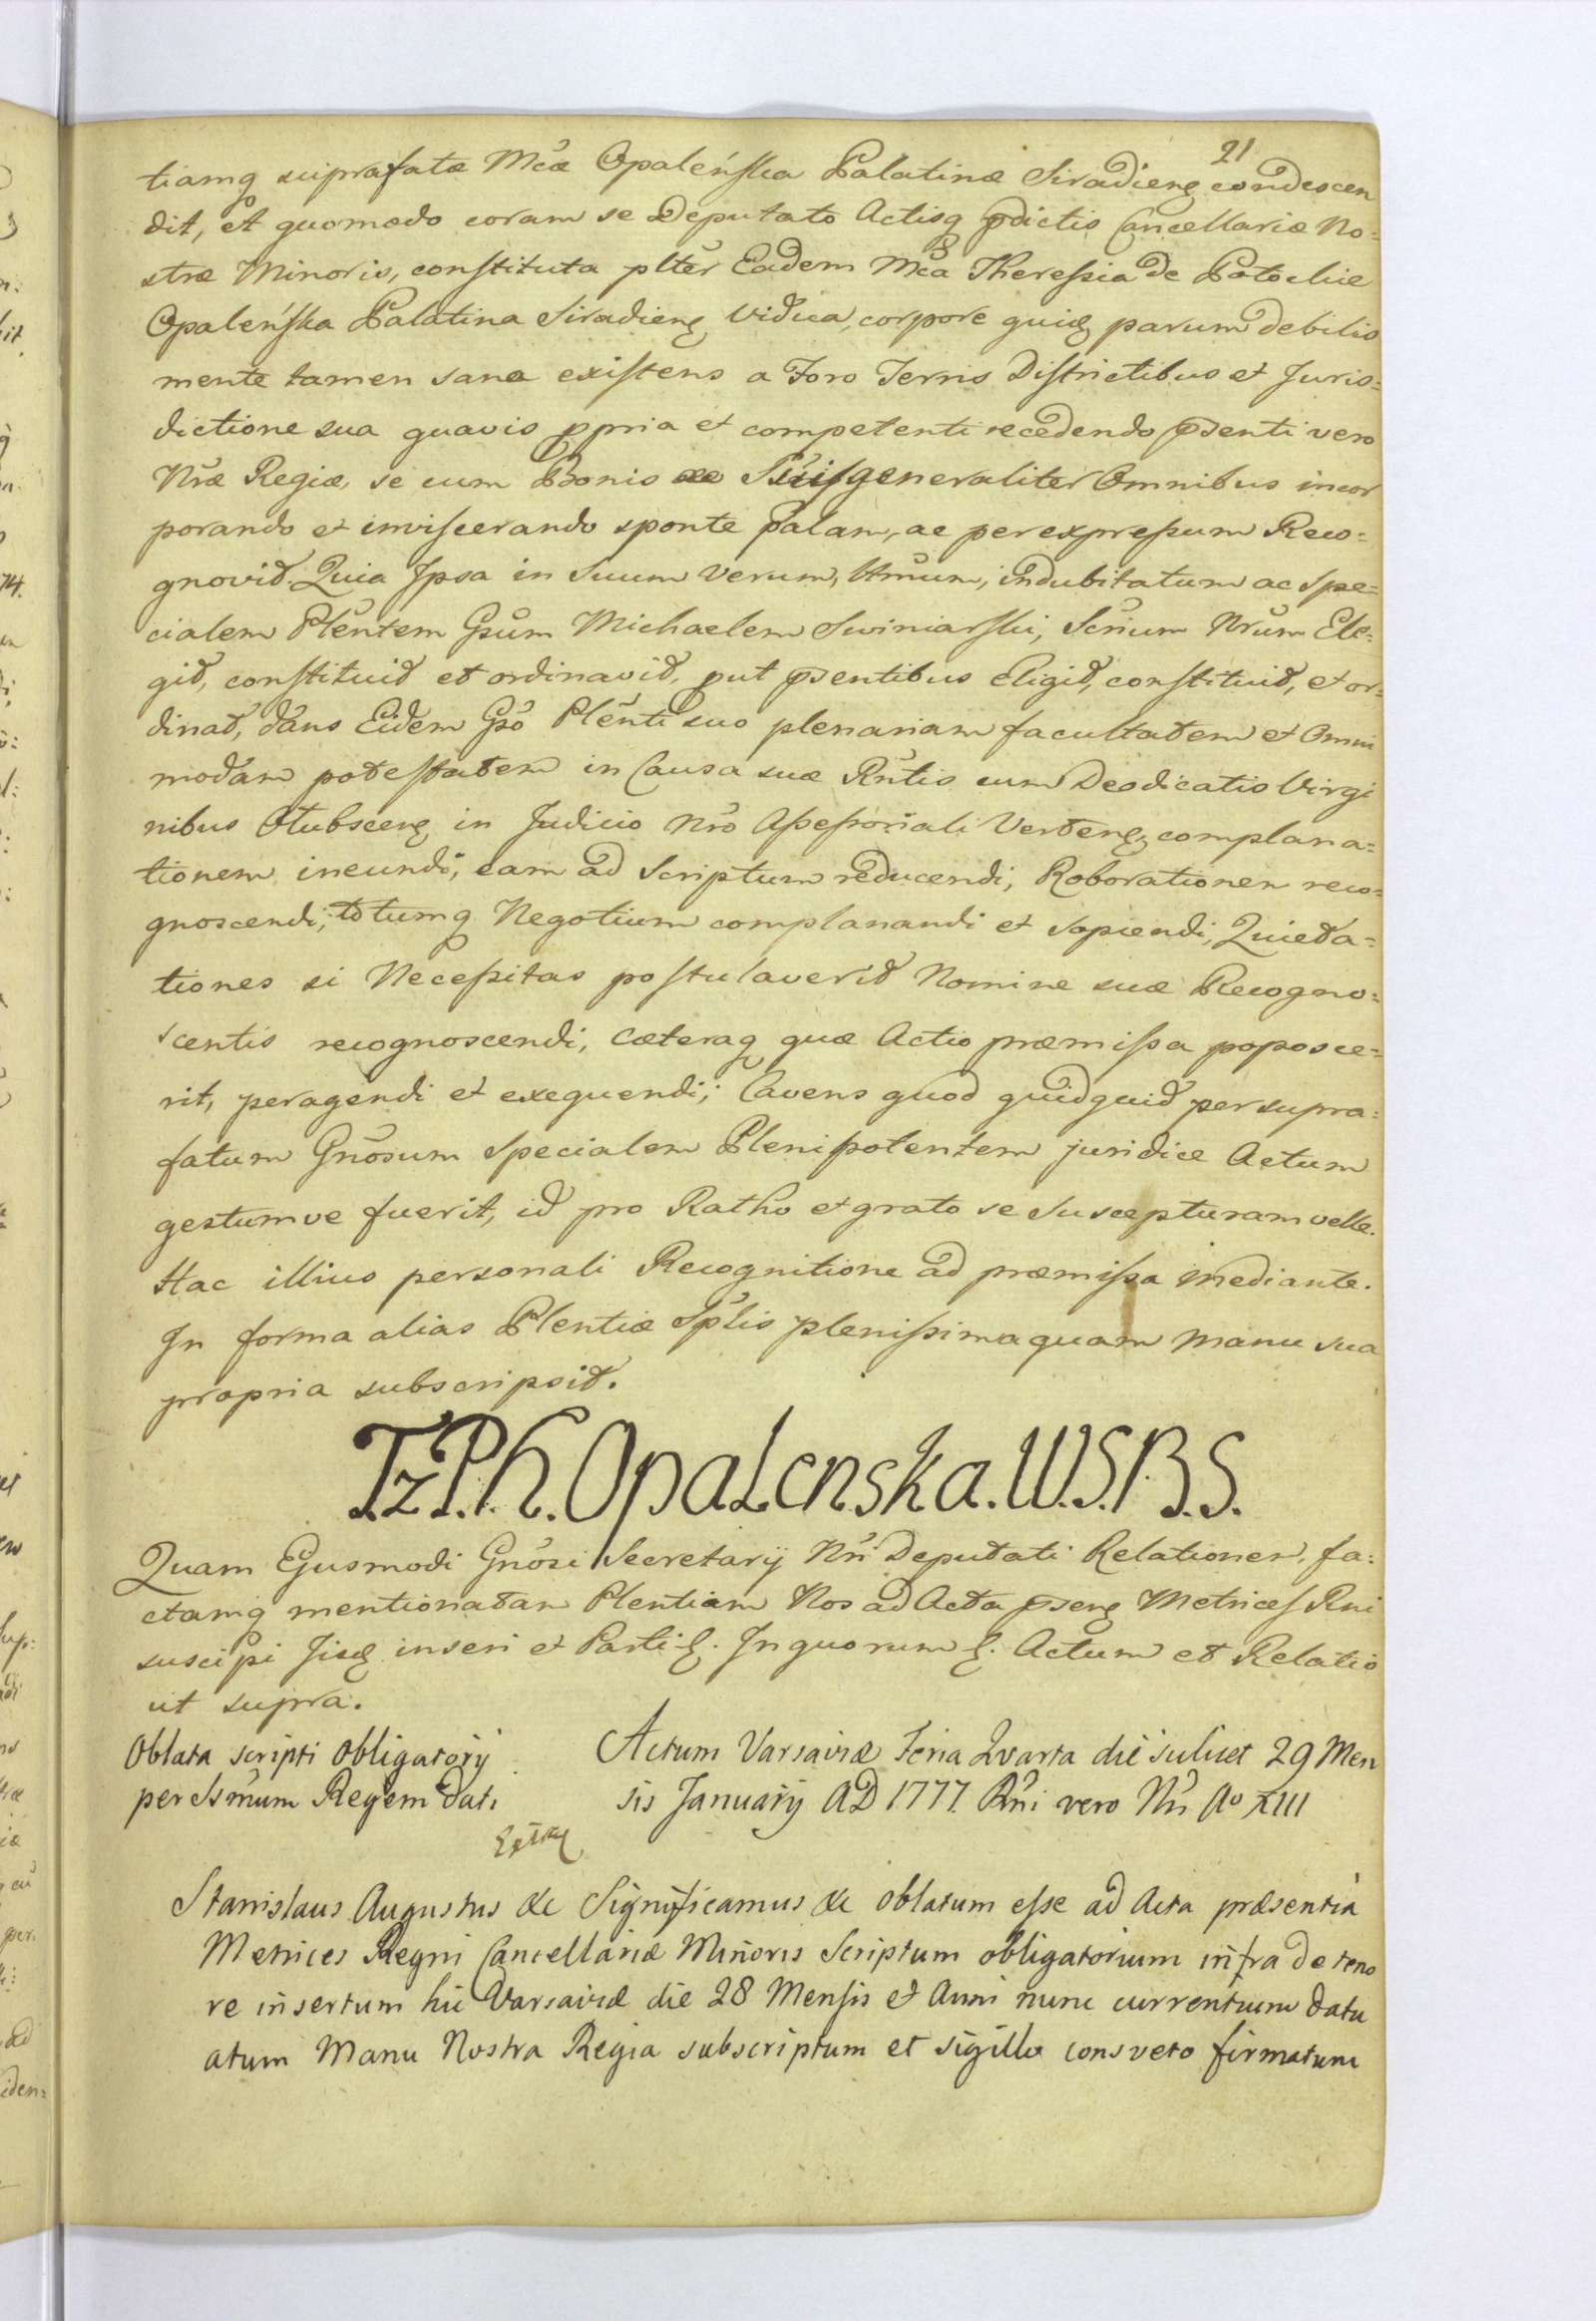 21
tiamq suprafatæ Mcæ Opaleńska Palatinæ Siradieng condescen
dit, et quomodo coram se Deputato Actisq pdictis Cancellariæ No=
stræ Minoris, constituta plter Eadem Mca Theressia de Potockie
Opaleńska Palatina Siradieng Vidua, corpore quid parum debilis
mente tamen sana existens a Foro Terris Districtibus et Juris=
dictione sua quavis ppria et competenti recedendo psenti vero
Nræ Regiæ, se cum Bonis Suis generaliter Omnibus incor
porando et inviscerando sponte palam, ac per expressum Reco=
gnovit. Quia Ipsa in Suum Verum, indubitatum ac Spe=
cialem Plentem Gsum Michaelem Swiniarski, Scrium Nrum Ele=
git, constituit et ordinavit, put psentibus Eligit, constituit, et or=
dinat, dans Eidem Gso Plenti suo plenariam facultatem et Omni
modam potestatem in Causa suæ Rntis cum Deodicatis Virgi
nibus Otubsceng in Judicio Nro Assessoriali Verteng, complana=
tionem ineundi, eam ad Scriptum reducendi, Roborationem reco=
gnoscendi; totumq Negotium complanandi et sopiendi, Quieta=
tiones si Necessitas postulaverit Nomine suæ Recogno=
scentis recognoscendi, cæteraq quæ Actio præmissa poposce=
rit, peragendi et exequendi; Cavens quod quidquid per supra=
fatum Gnosum Specialem Plenipotentem juridice Actum
gestumve fuerit, id pro Ratho et grato se Suscepturam velle.
Hac illius personali Recognitione ad præmissa mediante.
In forma alias Plentiæ Splis plenissima quam Manu sua
propria subscripsit.
T.z.P.h. OpaLenska. W.S.B.S.
Quam Ejusmodi Gnosi Secretarij Nri Deputati Relationem, fa=
ctamq mentionatam Plentiam Nos ad Acta pseng Metrices Rni
suscipi Jisq inseri et Parti &. In quorum &. Actum et Relatio
ut supra.
Oblata scripti obligatorij
per Ssmum Regem Dati
Actum Varsaviæ Feria Qvarta die scilicet 29 Men
sis Januarij AD 1777. Rni vero Nri Ao XIII
Stanislaus Augustus &c Significamus &c oblatum esse ad Acta præsentia
Metrices Regni Cancellariæ Minoris Scriptum obligatorium infra de teno
re insertum hic Varsaviæ die 28 Mensis et Anni nunc currentium datu
atum Manu Nostra Regia subscriptum et sigillo consveto firmatum